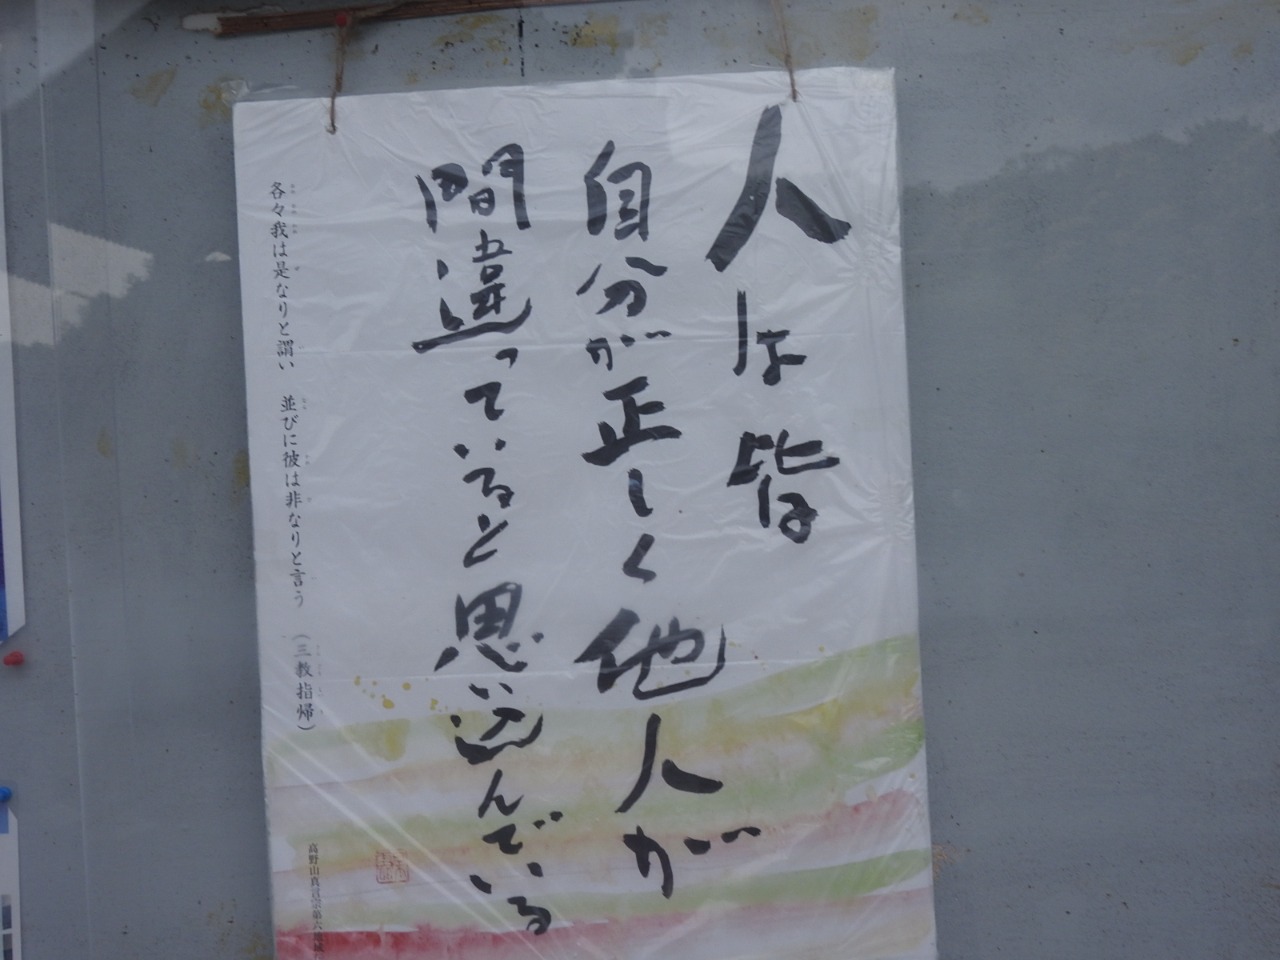 人は皆
自分が正しく他人が
間違っていると思い込んでいる
各々我は是なりと謂い　並びに彼は非なりと言う　（三教指帰）
高野山真言宗第六